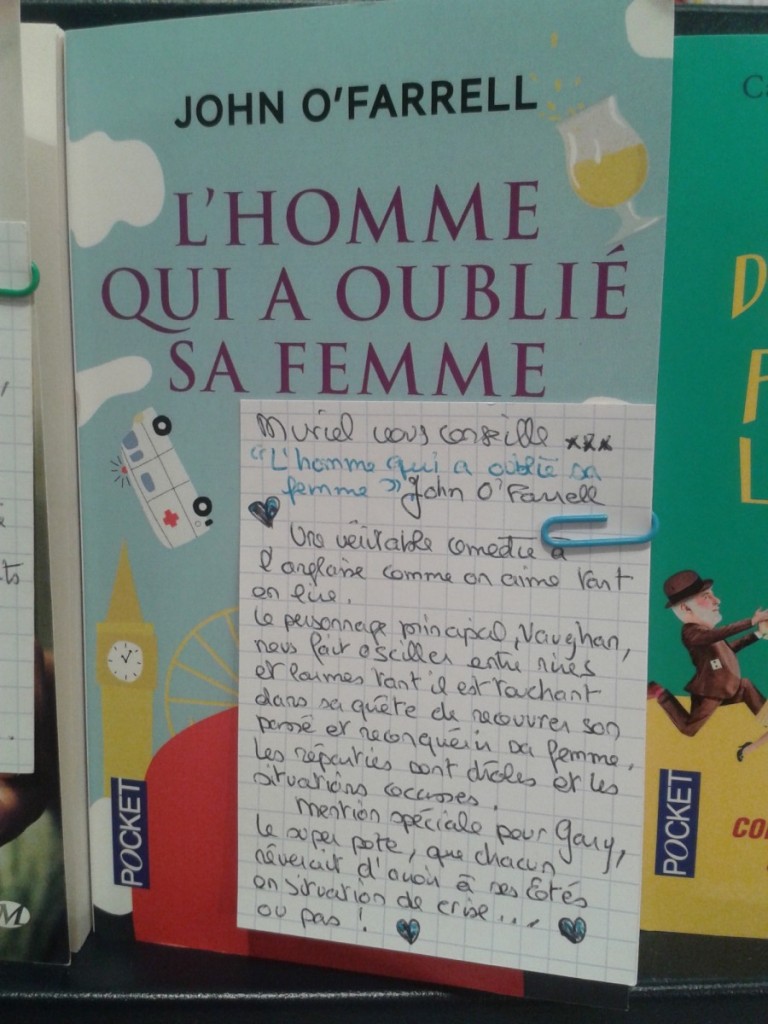 JOHN O'FARRELL
L'HOMME
QUI A OUBLIÉ
SA FEMME
Muriel vous conseille ***
"L'homme qui a oublié sa
femme" John O'Farrell
Une véritable comédie à
l'anglaise comme on aime tant
en lire.
Le personnage principal, Vaughan,
nous fait osciller entre rires
et larmes tant il est touchant
dans sa quête de recouvrer son
passé et reconquérir sa femme.
Les réparties sont drôles et les
situations cocasses.
Mention spéciale pour Gary,
le super pote, que chacun
rêverait d'avoir à ses côtés
en situation de crise...
ou pas !
POCKET
POCKET
M